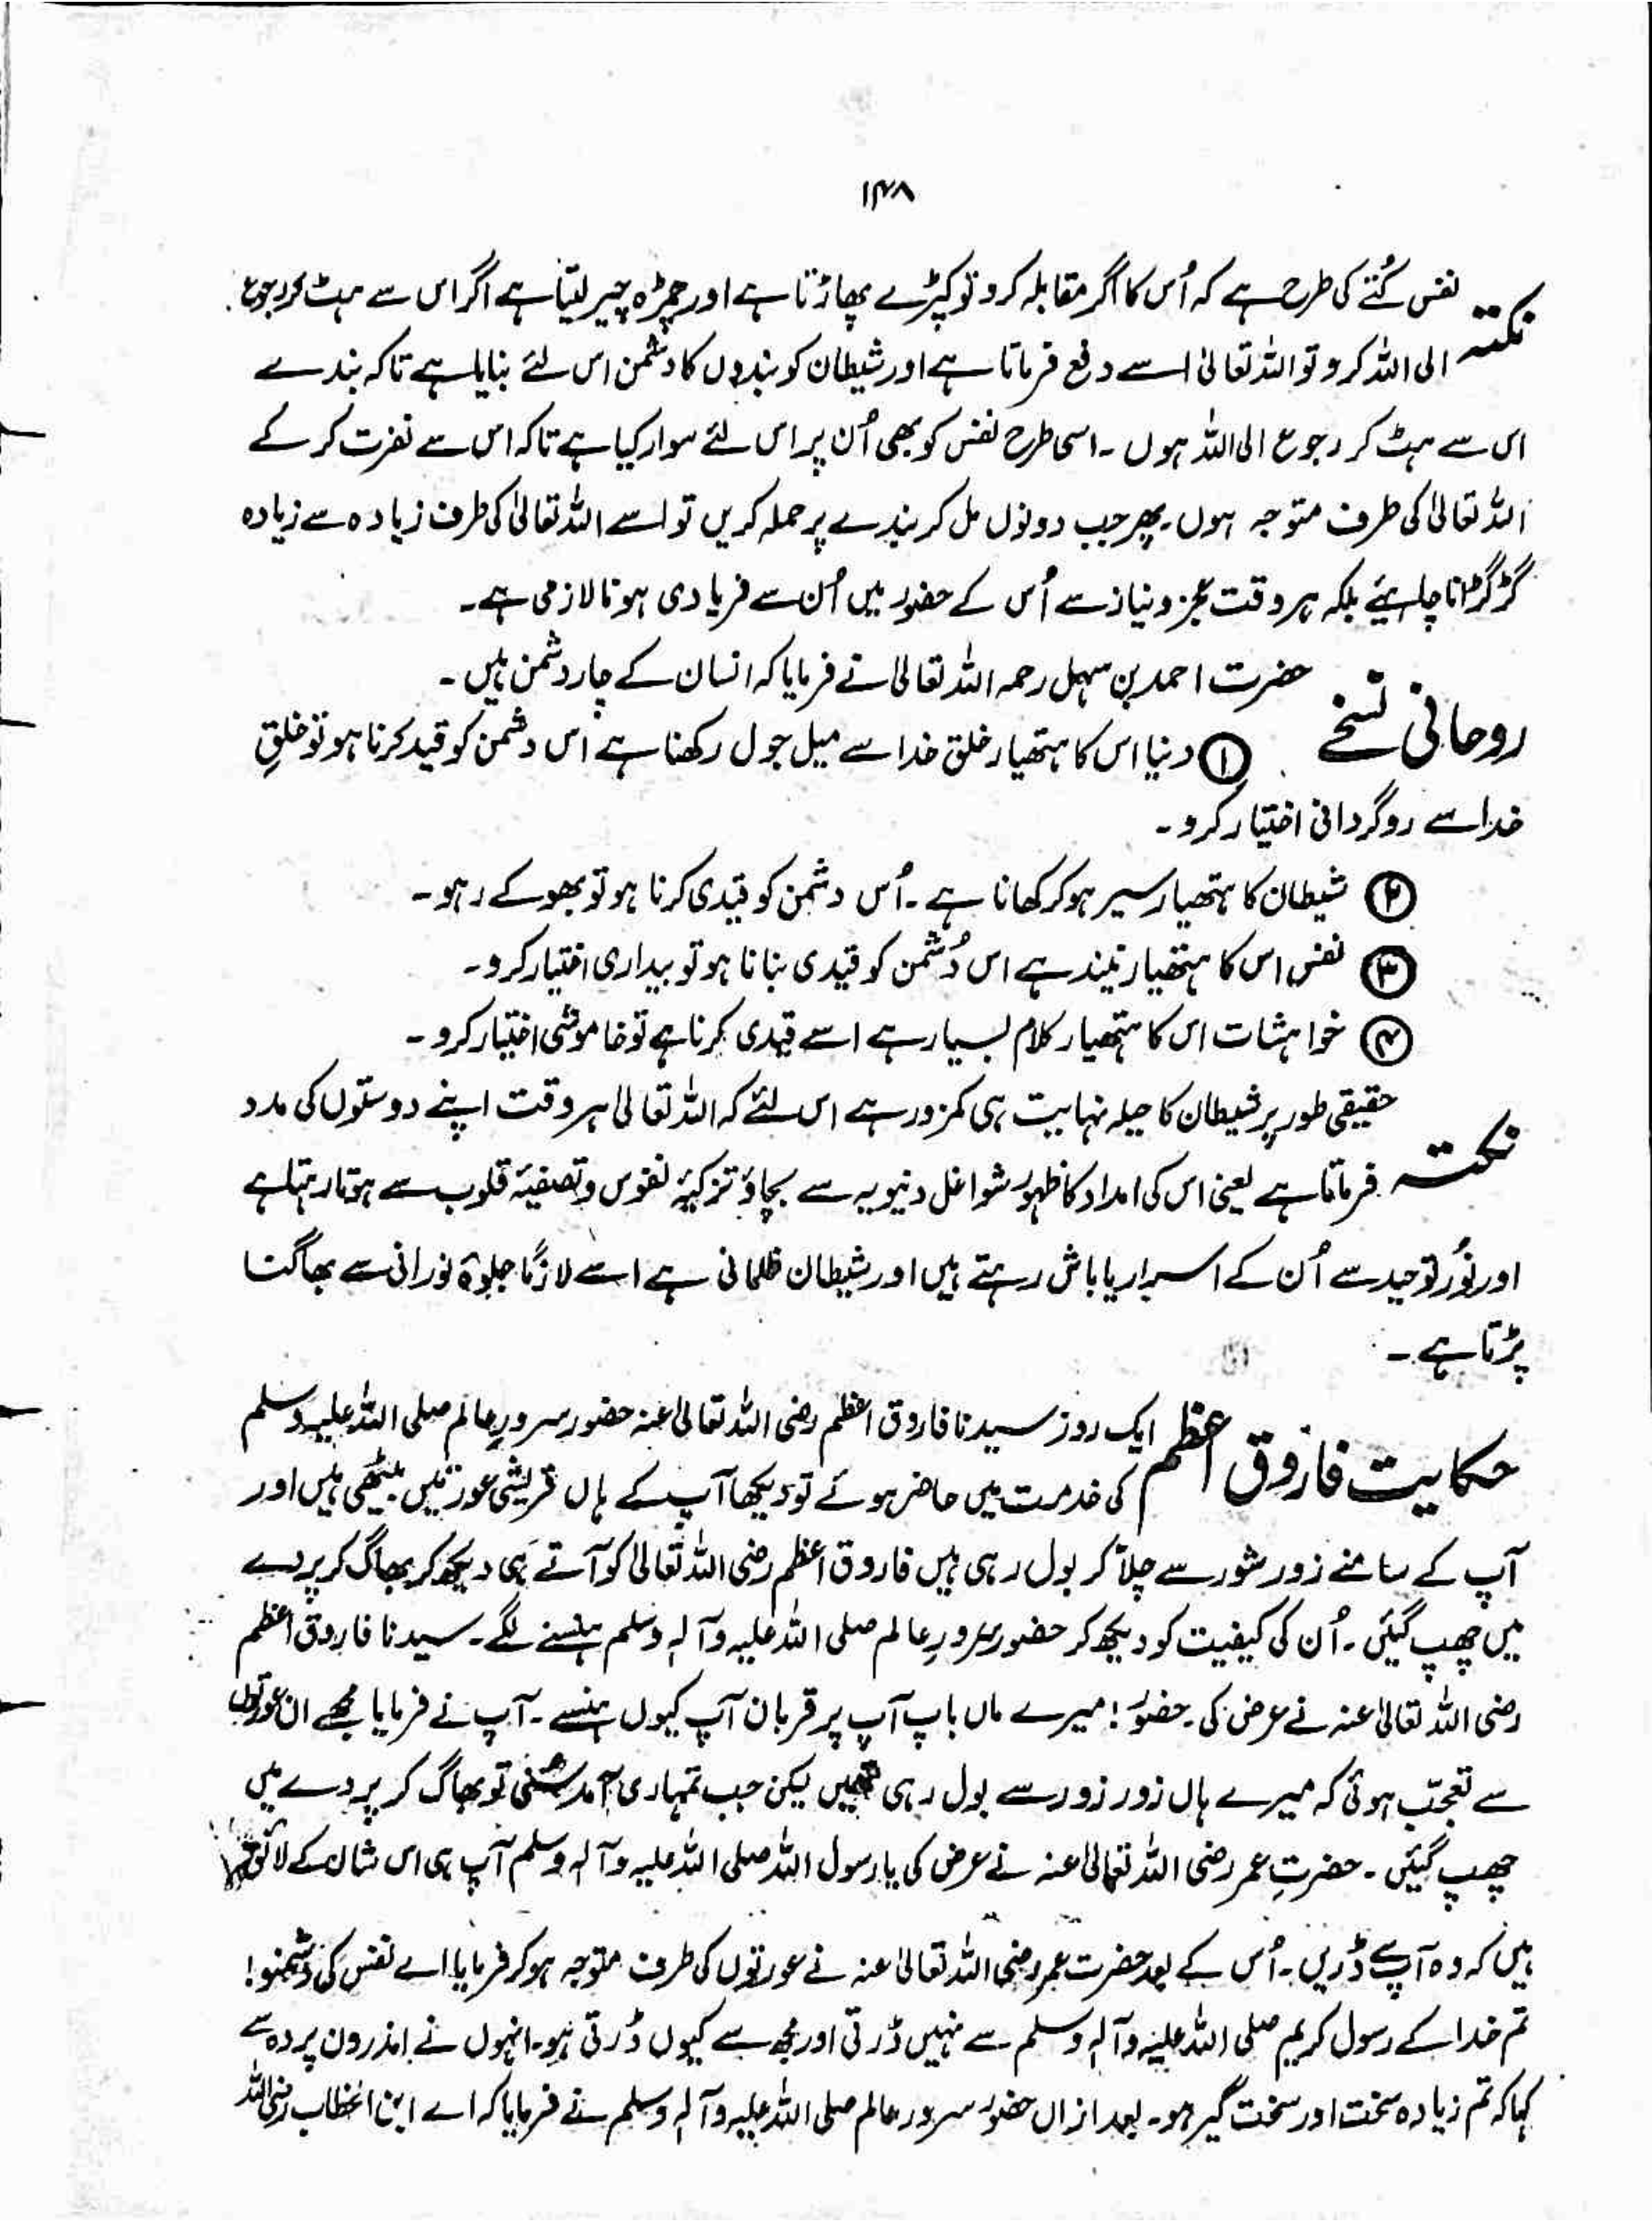 ۱۴۸
نکتہ نفس کُتّے کی طرح ہے کہ اُس کا اگر مقابلہ کرو تو کپڑے پھاڑتا ہے اور چمڑہ چیر لیتا ہے اگر اس سے ہٹ کر رجوع
الی اللہ کرو تو اللہ تعالیٰ اسے دفع فرماتا ہے اور شیطان کو بندوں کا دشمن اس لئے بنایا ہے تاکہ بندے
اس سے ہٹ کر رجوع الی اللہ ہوں ۔ اسی طرح نفس کو بھی اُن پر اس لئے سوار کیا ہے تاکہ اس سے نفرت کر کے
اللہ تعالیٰ کی طرف متوجہ ہوں ۔ پھر جب دونوں مل کر بندے پر حملہ کریں تو اسے اللہ تعالیٰ کی طرف زیادہ سے زیادہ
گڑگڑانا چاہیئے بلکہ ہر وقت عجز و نیاز سے اُس کے حضور میں اُن سے فریادی ہونا لازمی ہے ۔
روحانی نسخے حضرت احمد بن سہل رحمہ اللہ تعالیٰ نے فرمایا کہ انسان کے چار دشمن ہیں ۔
① دنیا اس کا ہتھیار خلق خدا سے میل جول رکھنا ہے اس دشمن کو قید کرنا ہو تو خلقِ
خدا سے روگردانی اختیار کرو ۔
② شیطان کا ہتھیار سیر ہو کر کھانا ہے ۔ اُس دشمن کو قیدی کرنا ہو تو بھوکے رہو ۔
③ نفس اس کا ہتھیار نیند ہے اس دُشمن کو قیدی بنانا ہو تو بیداری اختیار کرو ۔
④ خواہشات اس کا ہتھیار کلام بسیار ہے اسے قیدی کرنا ہے تو خاموشی اختیار کرو ۔
نکتہ حقیقی طور پر شیطان کا حیلہ نہایت ہی کمزور ہے اس لئے کہ اللہ تعالیٰ ہر وقت اپنے دوستوں کی مدد
فرماتا ہے یعنی اس کی امداد کا ظہور شواغل دنیویہ سے بچاؤ تزکیۂ نفوس و تصفیۂ قلوب سے ہوتا رہتا ہے
اور نُور توحید سے اُن کے اسرار یاباش رہتے ہیں اور شیطان ظلمانی ہے اسے لازمًا جلوۂ نورانی سے بھاگنا
پڑتا ہے ۔
حکایت فاروق اعظم ایک روز سیدنا فاروق اعظم رضی اللہ تعالیٰ عنہ حضور سرورِ عالم صلی اللہ علیہ وسلم
کی خدمت میں حاضر ہوئے تو دیکھا آپ کے ہاں قریشی عورتیں بیٹھی ہیں اور
آپ کے سامنے زور شور سے چلّا کر بول رہی ہیں فاروق اعظم رضی اللہ تعالیٰ کو آتے ہی دیکھ کر بھاگ کر پردے
میں چھپ گئیں ۔ اُن کی کیفیت کو دیکھ کر حضور سرورِ عالم صلی اللہ علیہ وآلہٖ وسلم ہنسنے لگے ۔ سیدنا فاروق اعظم
رضی اللہ تعالیٰ عنہ نے عرض کی ۔ حضور! میرے ماں باپ آپ پر قربان آپ کیوں ہنسے ۔ آپ نے فرمایا مجھے ان عورتوں
سے تعجّب ہوئی کہ میرے ہاں زور زور سے بول رہی تھیں لیکن جب تمہاری آمد سُنی تو بھاگ کر پردے میں
چھپ گئیں ۔ حضرتِ عمر رضی اللہ تعالیٰ عنہ نے عرض کی یا رسول اللہ صلی اللہ علیہ وآلہٖ وسلم آپ ہی اس شان کے لائق
ہیں کہ وہ آپ سے ڈریں ۔ اُس کے بعد حضرت عمر رضی اللہ تعالیٰ عنہ نے عورتوں کی طرف متوجہ ہو کر فرمایا اے نفس کی دشمنو!
تم خدا کے رسول کریم صلی اللہ علیہ وآلہٖ وسلم سے نہیں ڈرتی اور مجھ سے کیوں ڈرتی ہو ۔ انہوں نے اندرون پردہ سے
کہا کہ تم زیادہ سخت اور سخت گیر ہو ۔ بعد ازاں حضور سرور عالم صلی اللہ علیہ وآلہٖ وسلم نے فرمایا کہ اے ابن الخطاب رضی اللہ